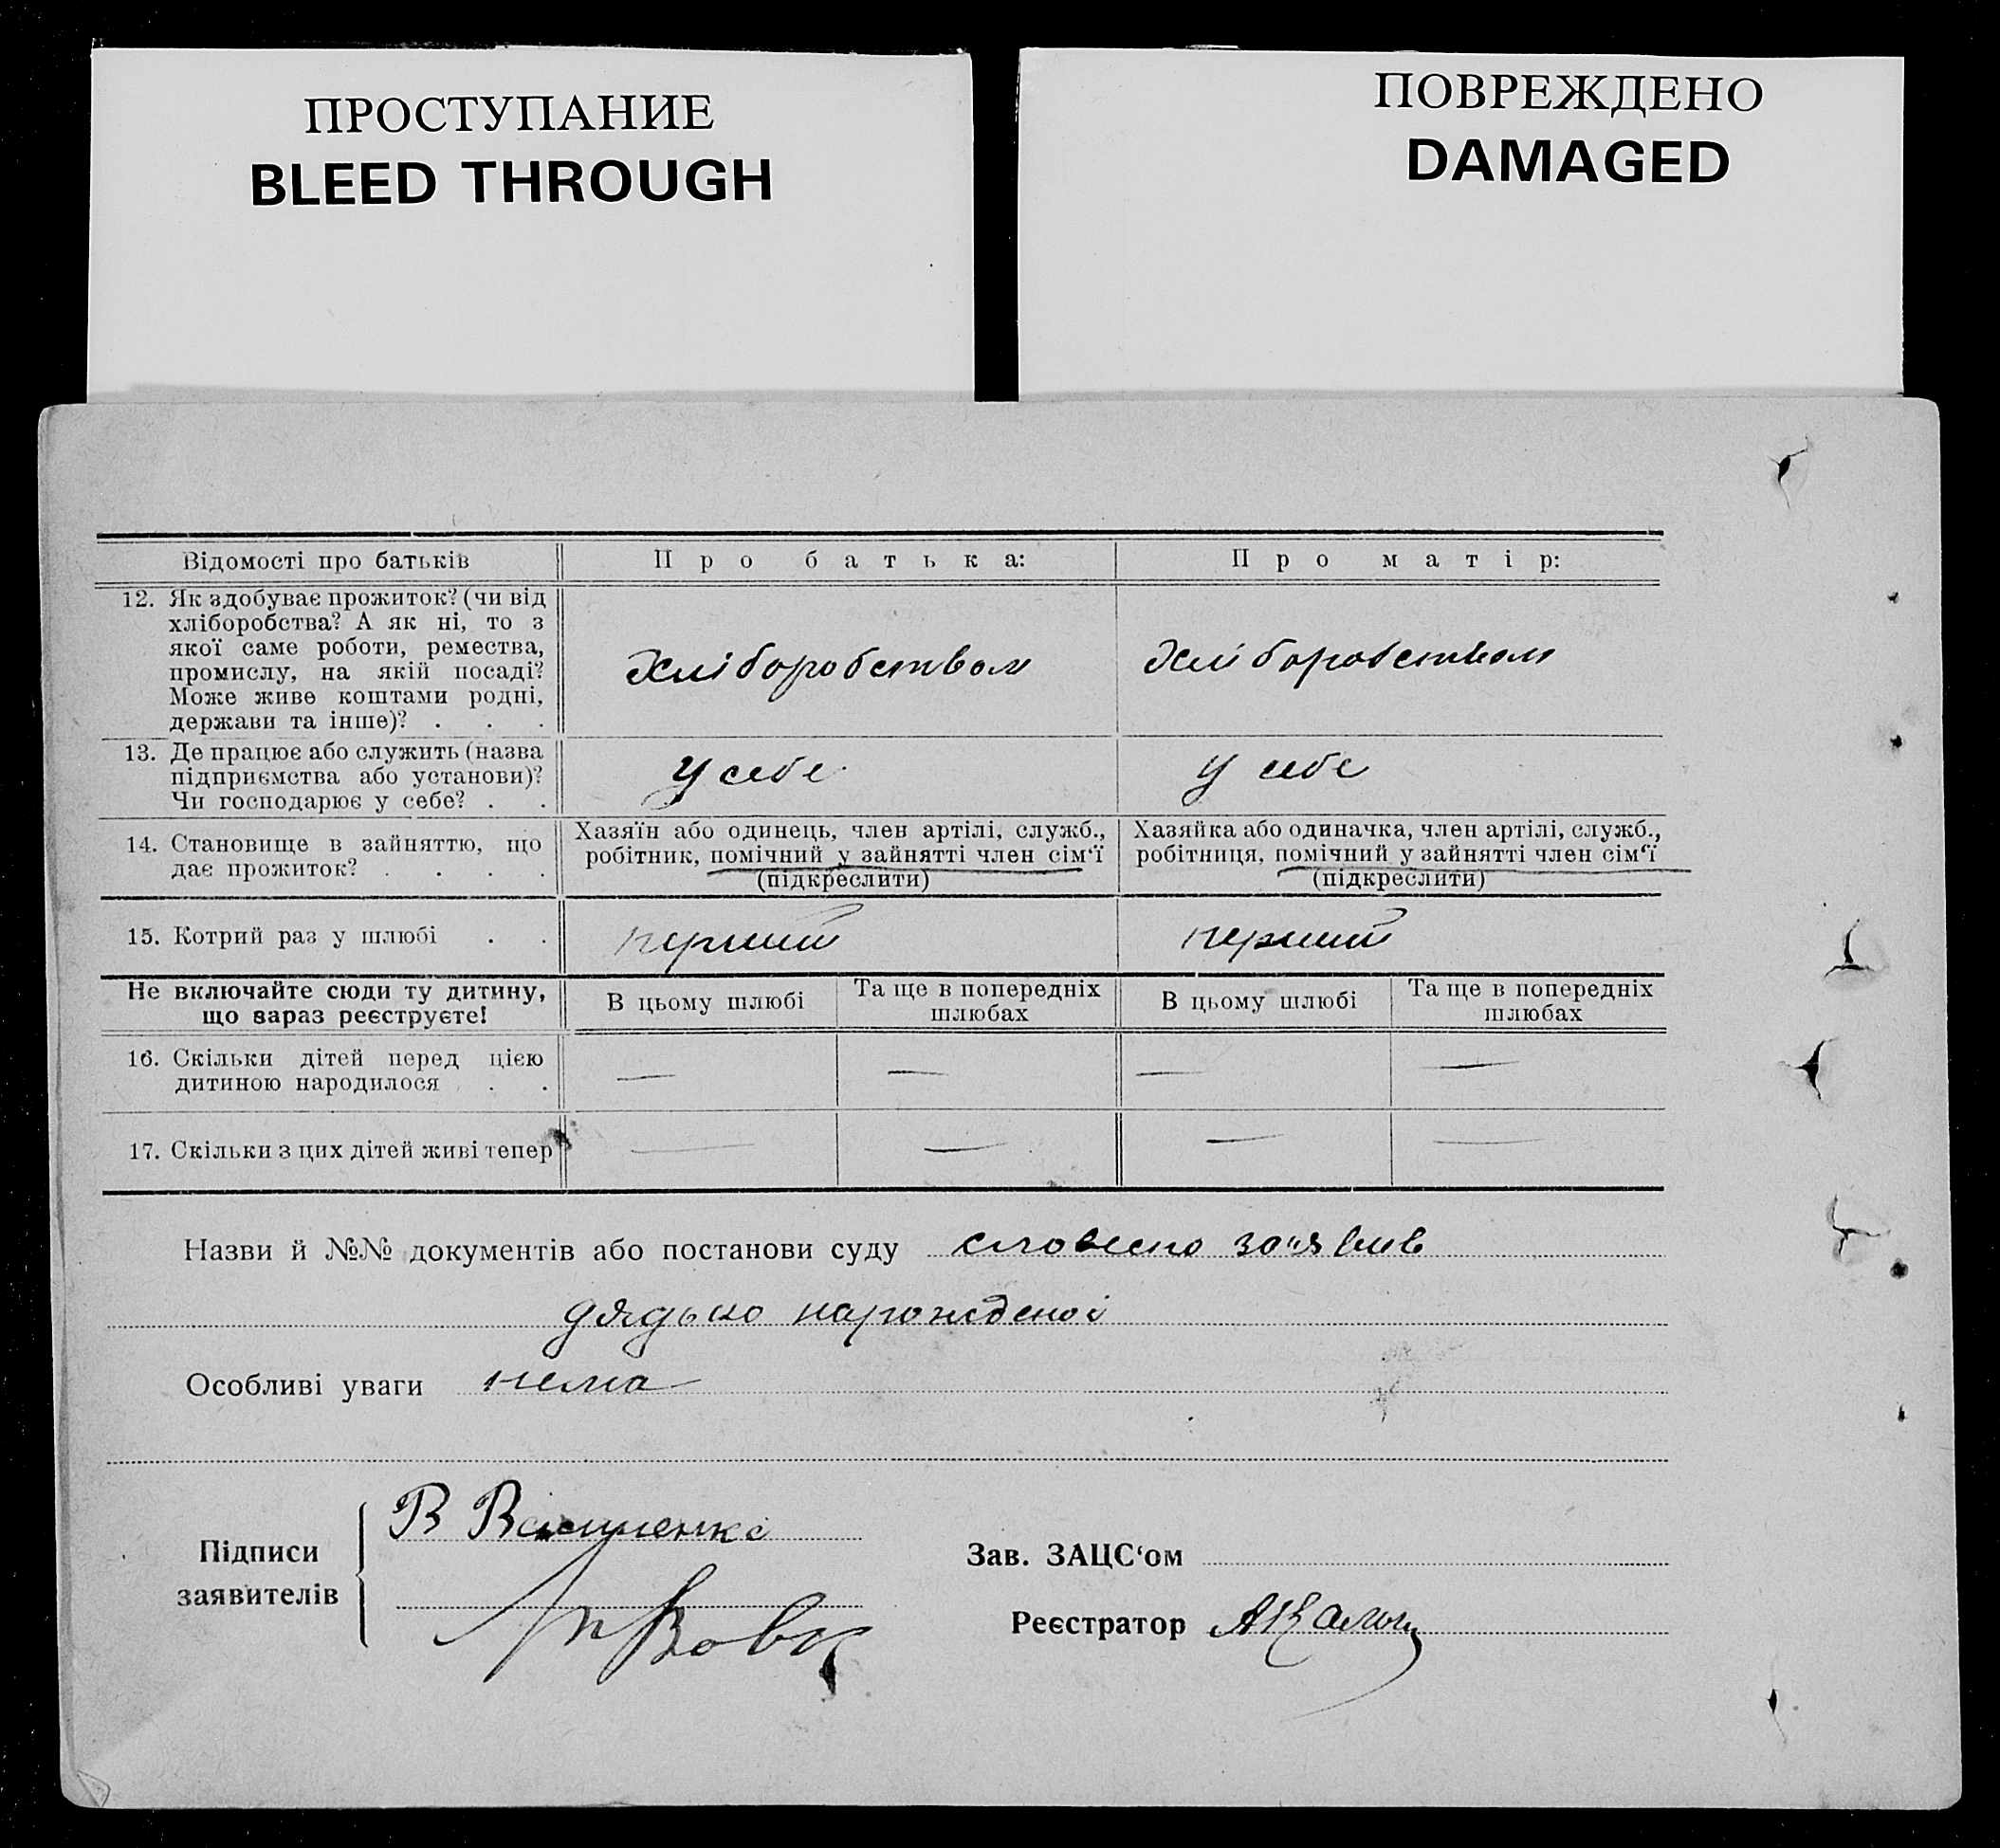 ПРОСТУПАНИЕ
BLEED THROUGH
ПОВРЕЖДЕНО
DAMAGED
Відомості про батьків
Про батька:
Про матір:
12. Як здобуває прожиток? (чи від
хліборобства? А як ні, то з
якої саме роботи, ремества,
промислу, на якій посаді?
Може живе коштами родні,
держави та інше)? . . .
Хліборобством
Хліборобством
13. Де працює або служить (назва
підприємства або установи)?
Чи господарює у себе? . .
У себе
У себе
14. Становище в зайняттю, що
дає прожиток? . . . .
Хазяїн або одинець, член артілі, служб.,
робітник, помічний у зайнятті член сім‘ї
(підкреслити)
Хазяйка або одиначка, член артілі, служб.,
робітниця, помічний у зайнятті член сім‘ї
(підкреслити)
15. Котрий раз у шлюбі . .
перший
перший
Не включайте сюди ту дитину,
що зараз реєструєте!
В цьому шлюбі
Та ще в попередніх
шлюбах
В цьому шлюбі
Та ще в попередніх
шлюбах
16. Скільки дітей перед цією
дитиною народилося . .
— — — —
17. Скільки з цих дітей живі тепер
— — — —
Назви й №№ документів або постанови суду словесно заявив
дядько нарожденої
Особливі уваги нема
Підписи
заявителів
В Василенко
Вовк
Зав. ЗАЦС‘ом
Реєстратор